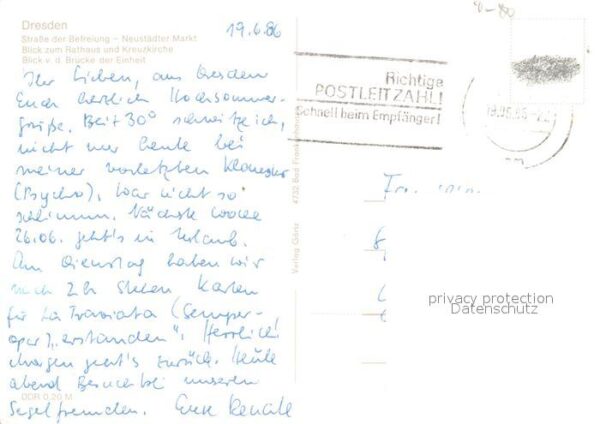 Dresden
19.6.86
Straße der Befreiung – Neustädter Markt
Blick zum Rathaus und Kreuzkirche
Blick v. d. Brücke der Einheit
Ihr Lieben, aus Dresden
Euch herzlich Hochsommer-
grüße. Bei 30° schwitze ich,
nicht nur heute bei
meiner vorletzten Klausur
(Psycho), war nicht so
schlimm. Nächste Woche
26.06. geht's in Urlaub.
Am Dienstag haben wir
nach 2 h Stehen Karten
für La Traviata (Semper-
oper) „erstanden". Herrlich!
Morgen geht's zurück. Heute
abend Besuch bei unseren
Segelfreunden. Eure Renate
DDR 0,20 M
Verlag Görtz
Richtige
POSTLEITZAHL!
Schnell beim Empfänger!
privacy protection
Datenschutz